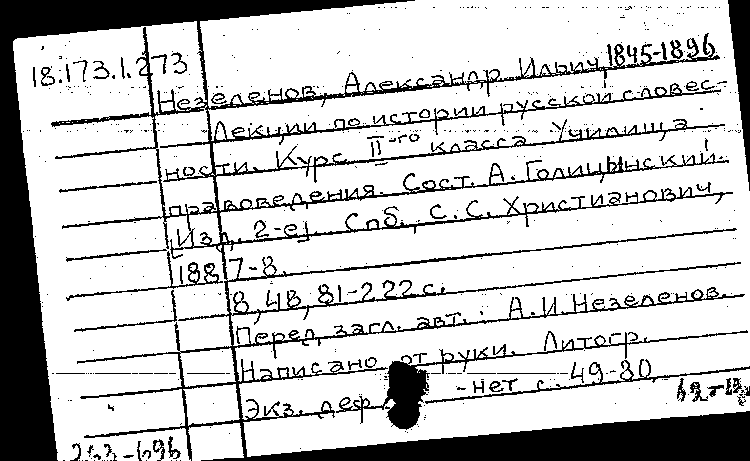 18.173.1.273
Незеленов, Александр Ильич, 1845-1896
Лекции по истории русской словес-
ности. Курс II-го класса Училища
правоведения. Сост. А. Голицынский.
[Изд. 2-е]. Спб., С.С. Христианович,
1887-8.
8, 48, 81-222 с.
Перед загл. авт.: А.И. Незеленов.
Написано от руки. Литогр.
Экз. деф. - нет с. 49-80
263-696